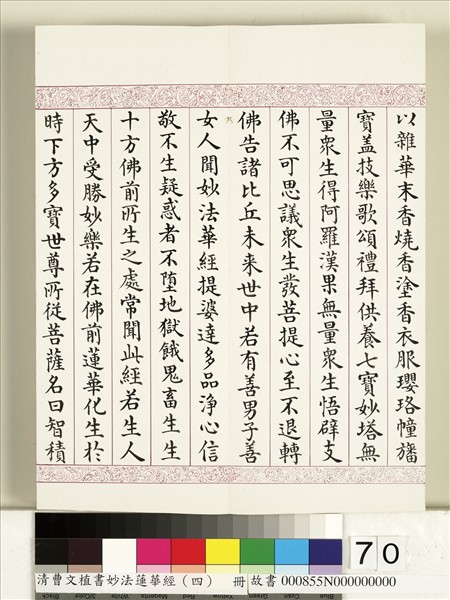 以雜華末香燒香塗香衣服瓔珞幢旛
寶盖技樂歌頌禮拜供養七寶妙塔無
量衆生得阿羅漢果無量衆生悟辟支
佛不可思議衆生發菩提心至不退轉
佛告諸比丘未来世中若有善男子善
女人聞妙法華經提婆達多品淨心信
敬不生疑惑者不墮地獄餓鬼畜生生
十方佛前所生之處常聞此經若生人
天中受勝妙樂若在佛前蓮華化生於
時下方多寶世尊所從菩薩名曰智積
70
清曹文植書妙法蓮華經（四） 冊 故書 000855N000000000